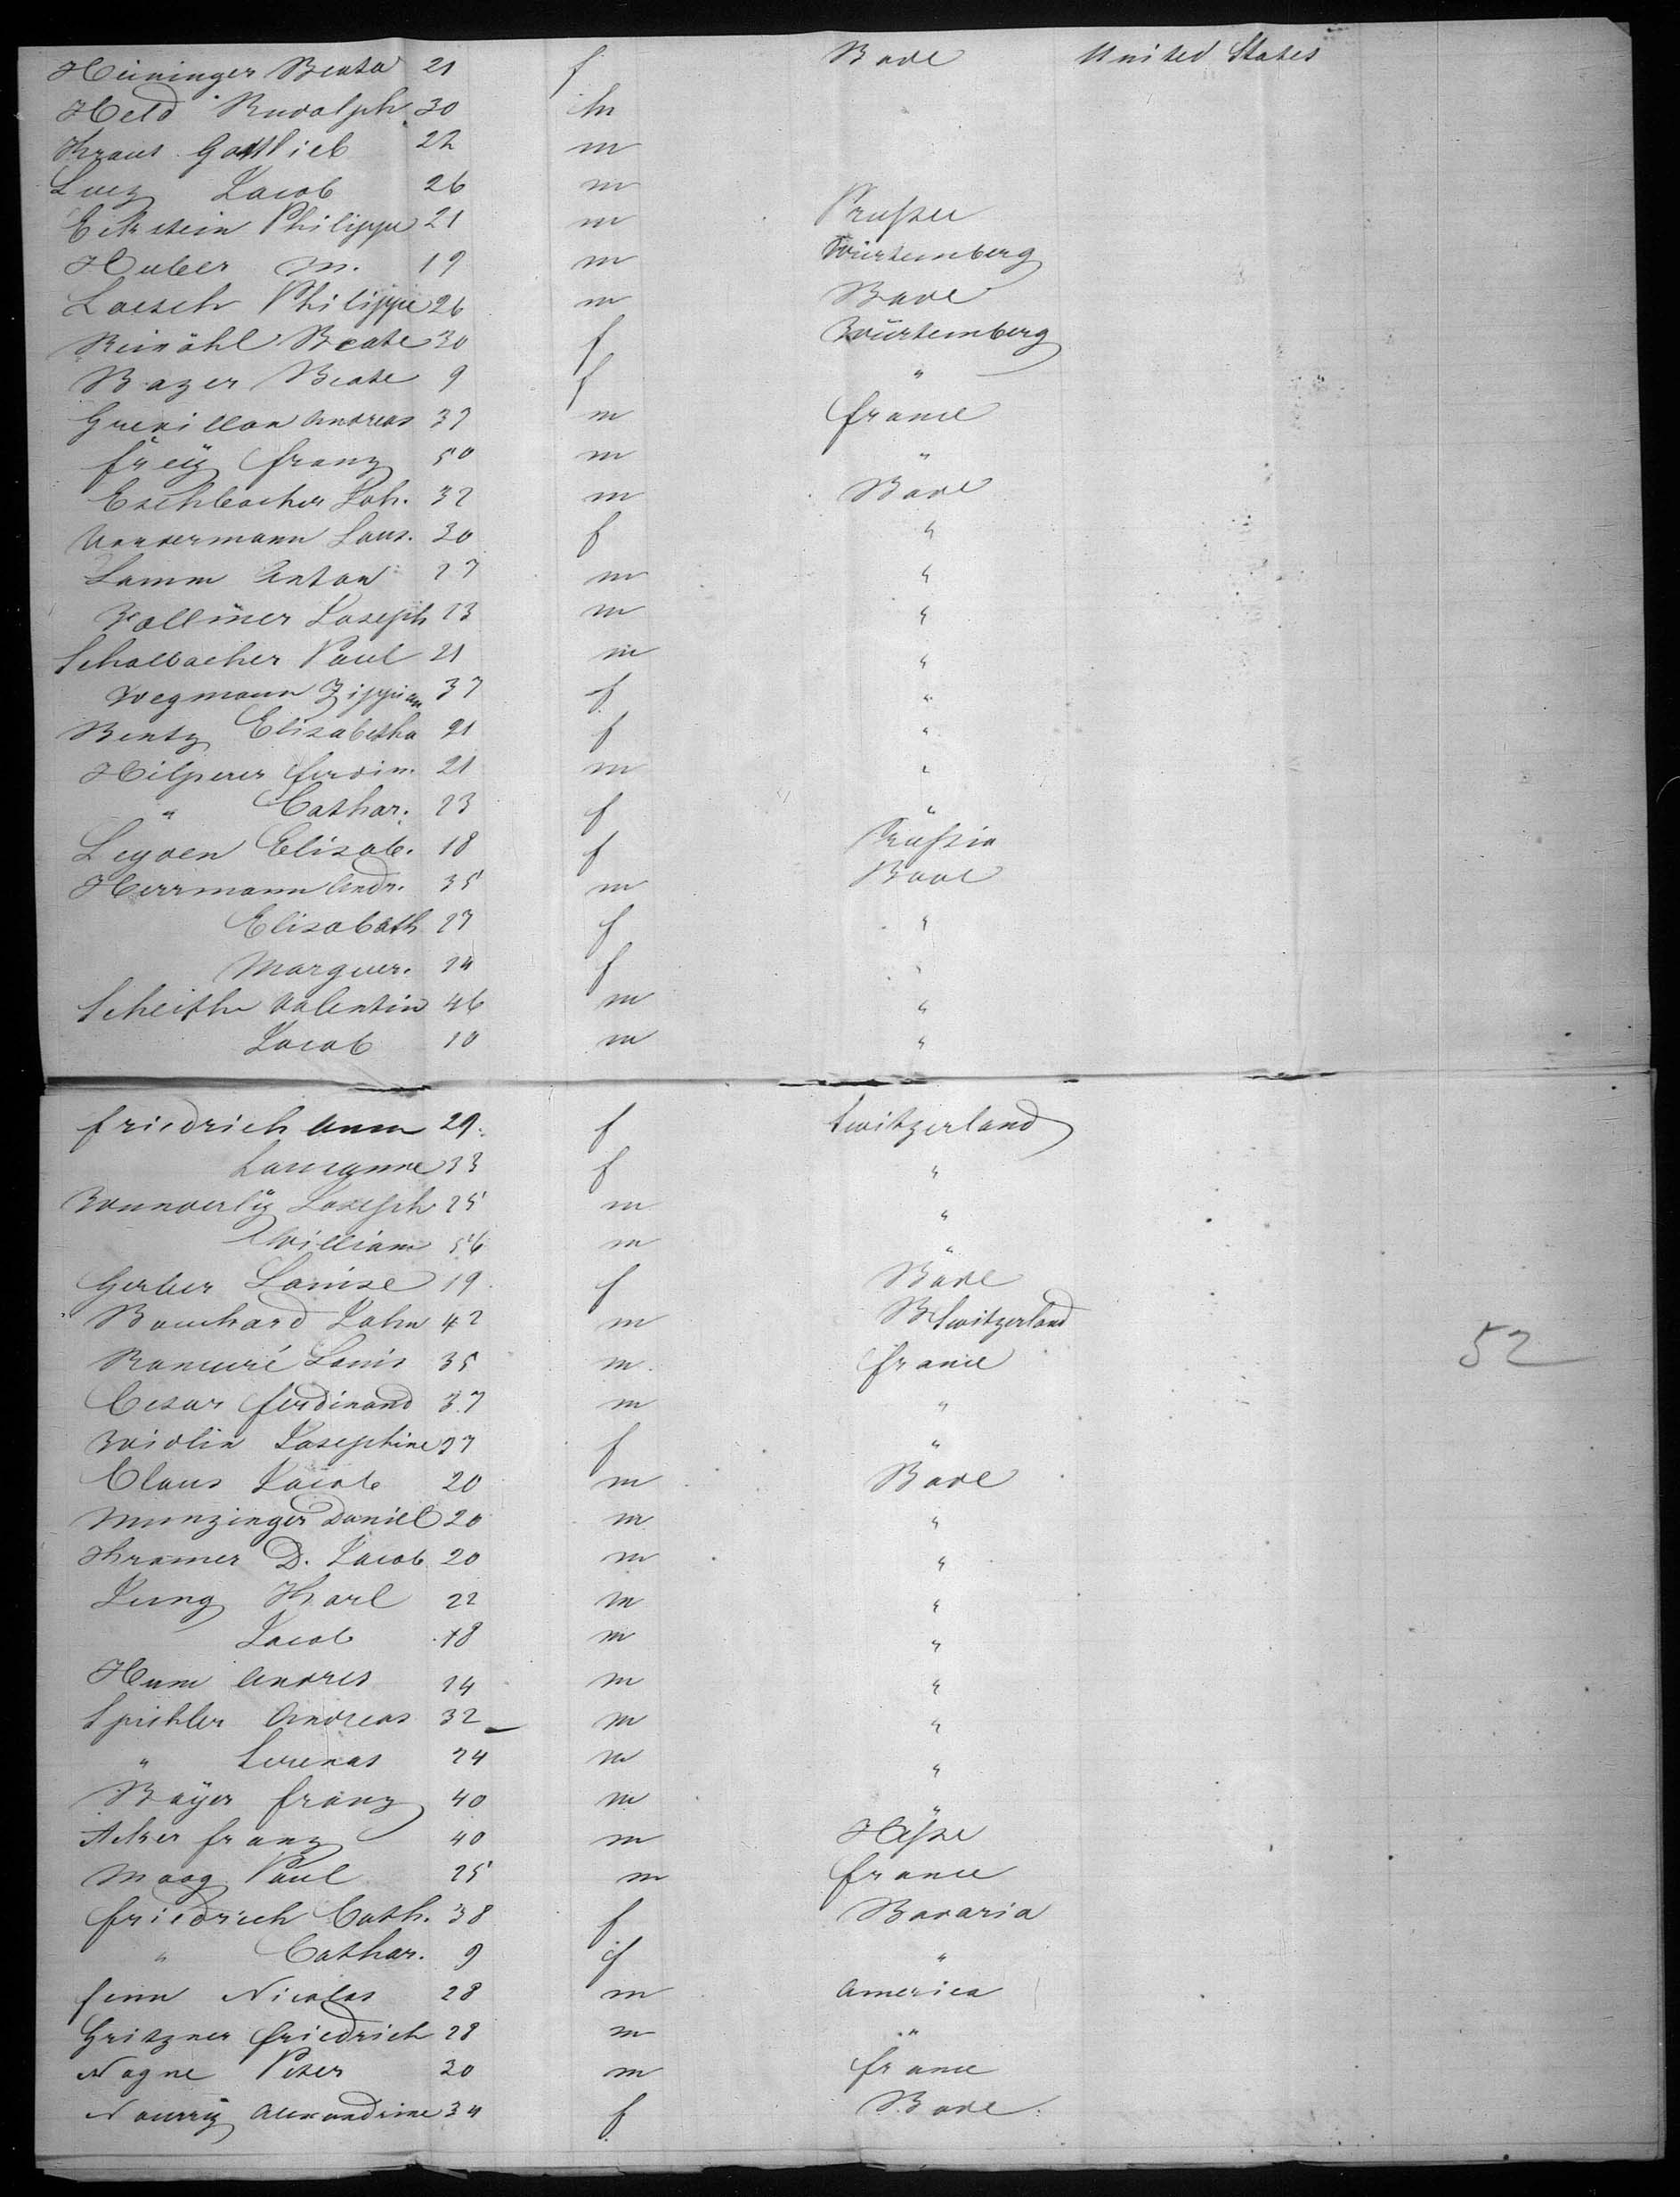 Heininger Beata 21 f Bade United States
Held Rudolph 30 m
Kraus Gottlieb 22 m
Lucz Jacob 26 m
Eckstein Philippe 21 m Prussee
Huber M. 19 m Würtemberg
Loesch Philippe 26 m Bade
Reinöhl Beate 30 f Würtemberg
Bazer Beate 9 f "
Andreas 37 m france
frey franz 50 m "
Eschbacher Joh. 32 m Bade
30 f "
Lamm Anton 27 m "
Vollmer Joseph 23 m "
Schalbacher Paul 21 m "
Wegmann 37 f "
Bentz Elisabetha 21 f "
Hilperer ferdin. 21 m "
" Cathar. 23 f "
Leyden Elisab. 18 f Prussia
Herrmann Andr. 35 m Bade
Elisabeth 27 f "
Marguer. f
Valentin 46 m "
Jacob 10 m "
friedrich Anna 29. f Switzerland
33 f "
Joseph 25 m "
William 56 m "
Gerber Louise 19 f Bade
Bouchard John 42 m Switzerland
Louis 35 m france
Cesar ferdinand 37 m "
Widlin Josephine 27 f "
Claus Jacob 20 m Bade
Munzinger Daniel 20 m "
Kramer D. Jacob 20 m "
Jung Karl 22 m "
Jacob 18 m "
Hum Andres 24 m "
Spichler Andreas 32 m "
" 24 m "
Bayer franz 40 m "
Acker franz 40 m Hesse
Moog Paul 25 m france
friedrich Cath. 38 f Bavaria
" Cathar. 9 f "
fenn Nicolas 28 m America
Gritzner friedrich 28 m "
Nagne Peter 30 m france
Alexandrine 34 f Bade
52